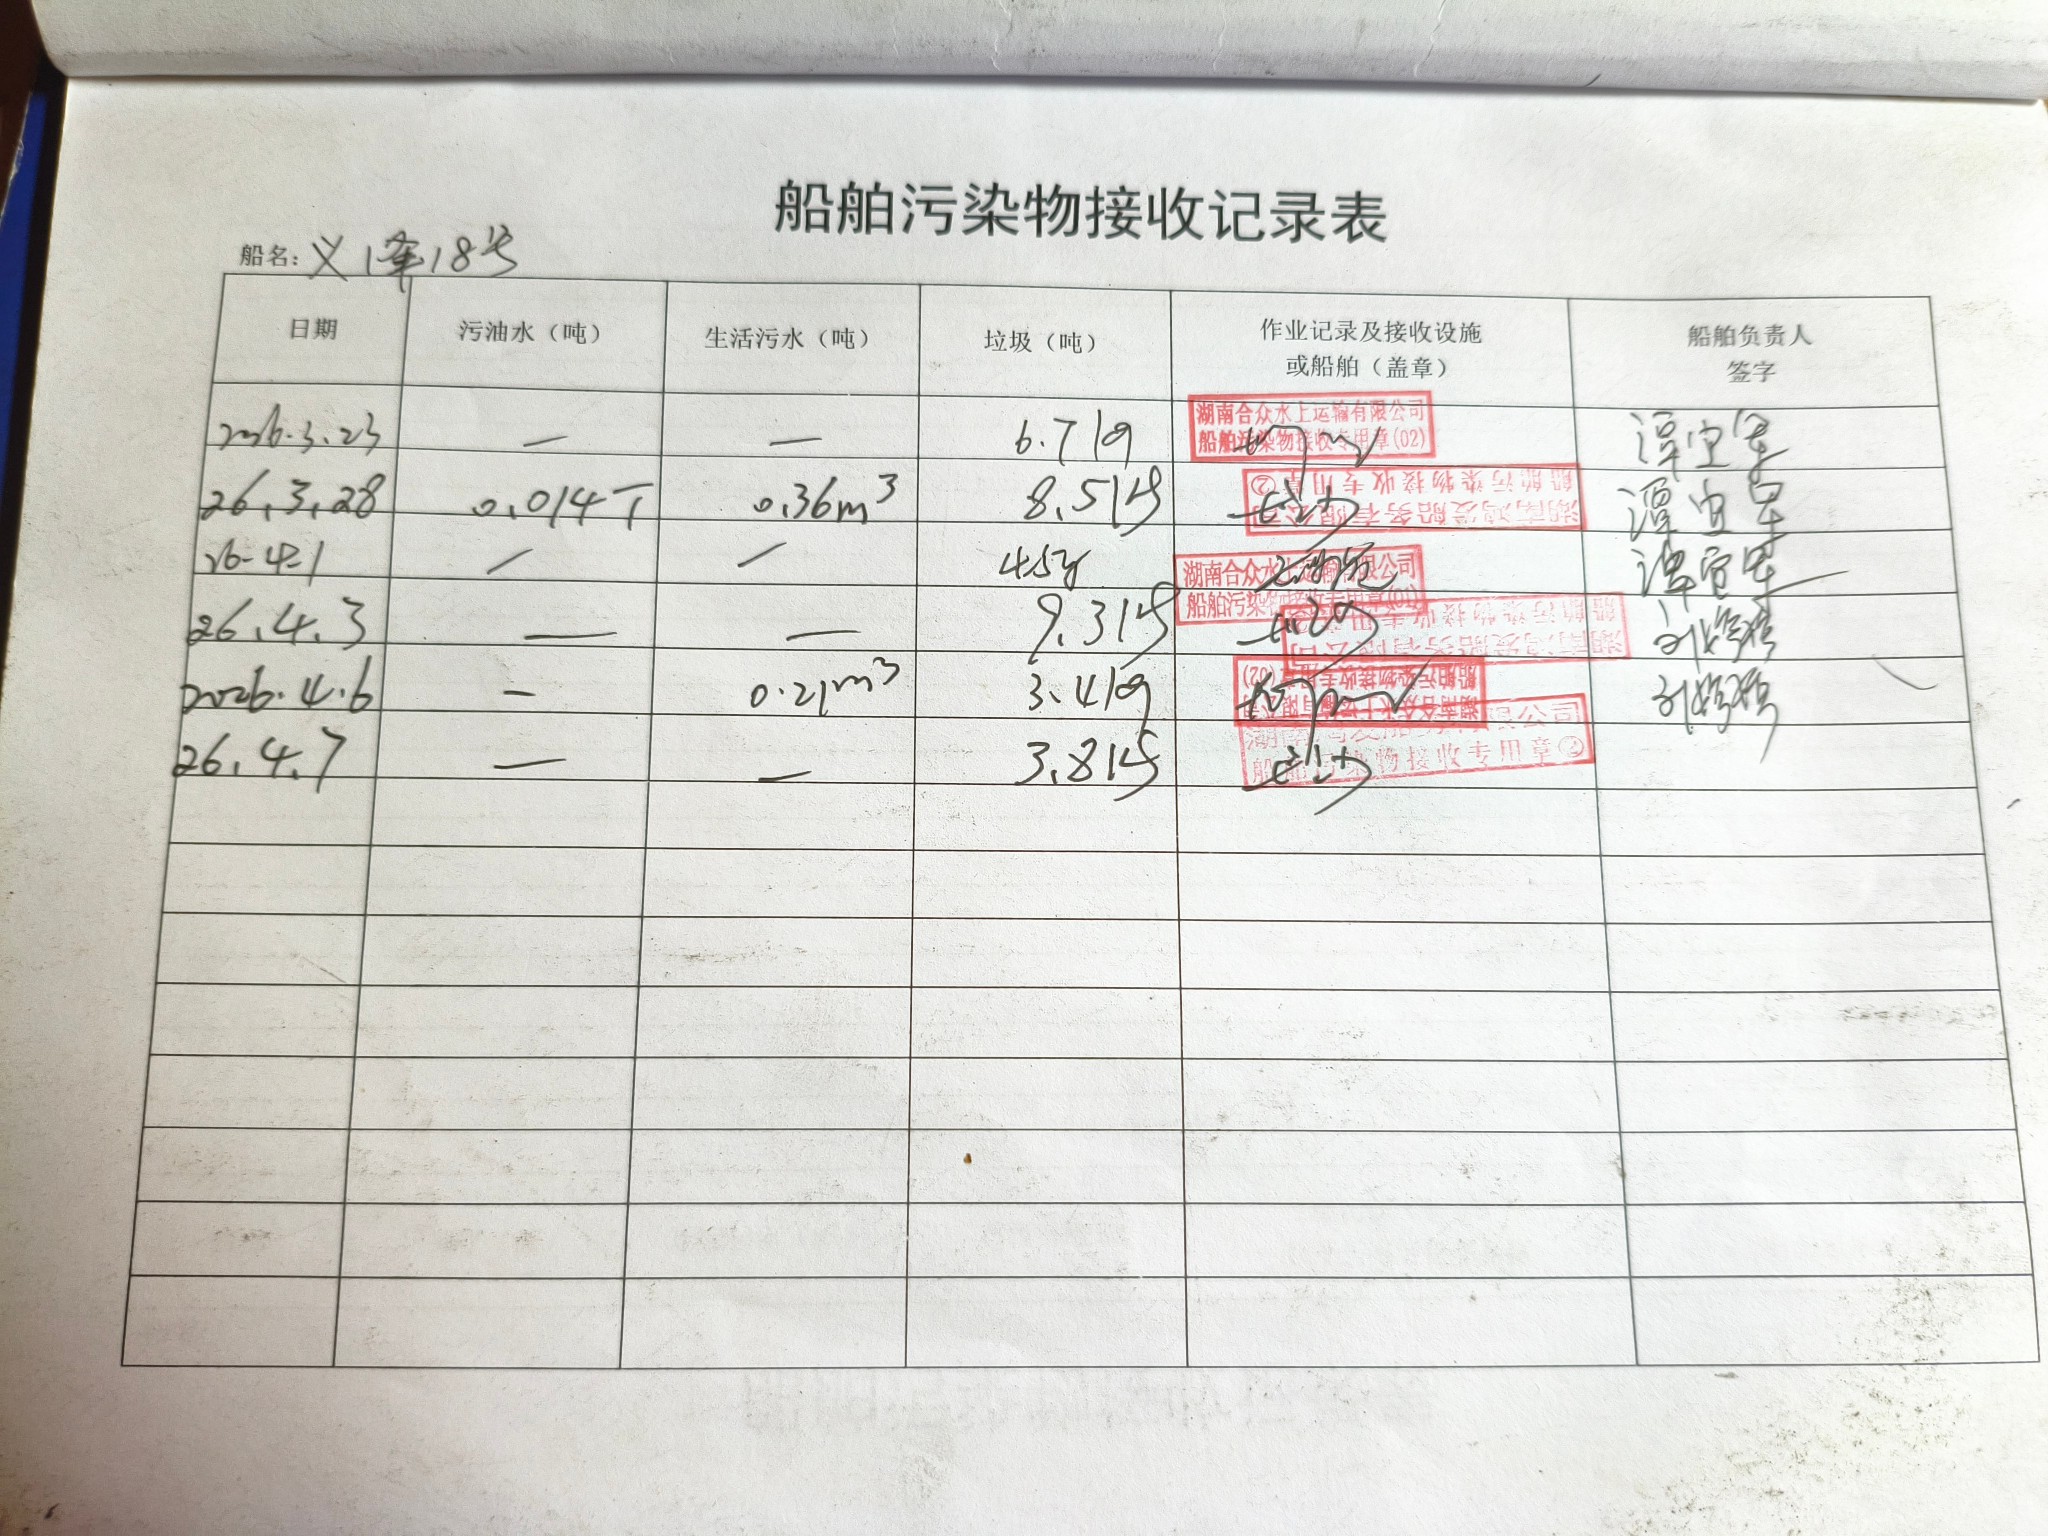 船舶污染物接收记录表
船名: 义峰18号
日期 污油水（吨） 生活污水（吨） 垃圾（吨） 作业记录及接收设施或船舶（盖章） 船舶负责人签字
2026.3.23 — — 6.7kg 湖南合众水上运输有限公司 船舶污染物接收专用章(02) 谭宜军
26.3.28 0.014T 0.36m³ 8.5kg 湖南鸿发船务有限公司 船舶污染物接收专用章② 谭宜军
26-4-1 / / 4.5kg 湖南合众水上运输有限公司 船舶污染物接收专用章(01) 谭宜军
26.4.3 — — 9.3kg 湖南鸿发船务有限公司 船舶污染物接收专用章
2026.4.6 — 0.21m³ 3.4kg 湖南合众水上运输有限公司 船舶污染物接收专用章(02)
26.4.7 — — 3.8kg 湖南鸿发船务有限公司 船舶污染物接收专用章②